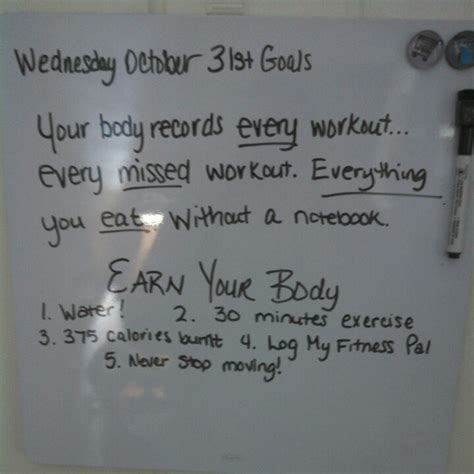 Wednesday October 31st Goals
Your body records every workout...
every missed workout. Everything
you eat. Without a notebook.
EARN YOUR BODY
1. Water! 2. 30 minutes exercise
3. 375 Calories burnt 4. Log My Fitness Pal
5. Never Stop moving!